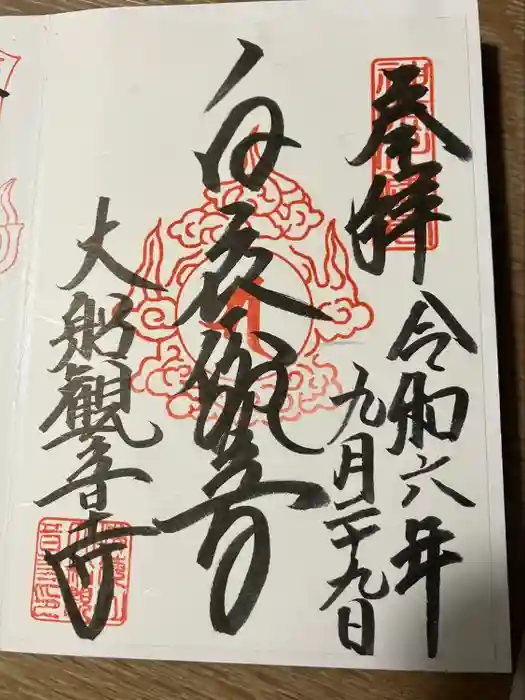 奉拝
令和六年
九月二十九日
白衣観音
大船観音寺